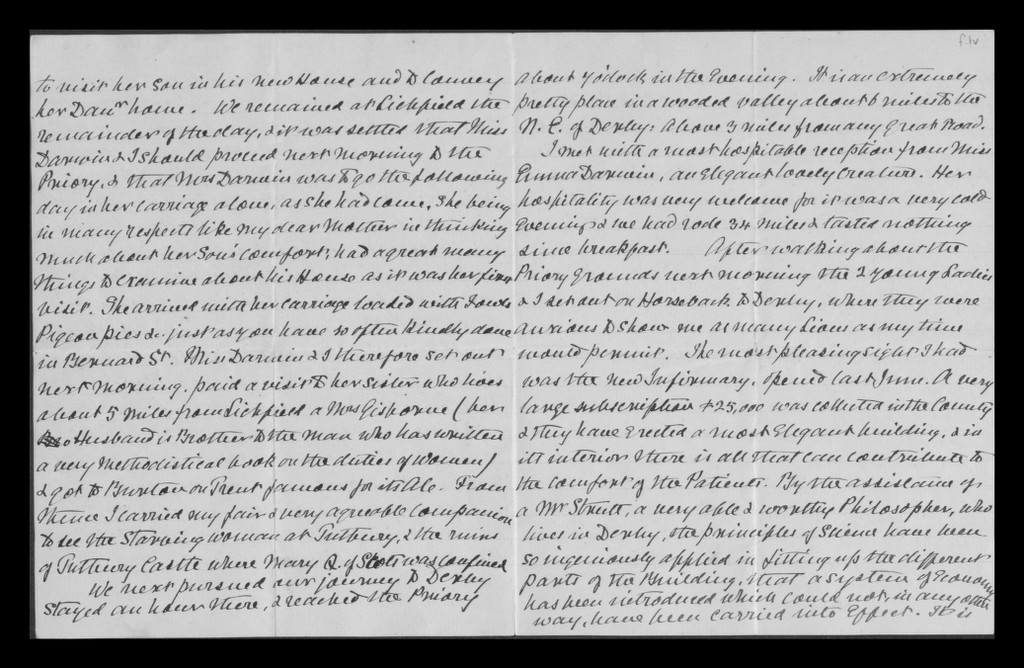 f.1v
to visit her Son in his New House and to Convey
her Daur. home. We remained at Lichfield the
remainder of the day, & it was settled that Miss
Darwin & I should proceed next morning to the
Priory, & that Mrs Darwin was to go the following
day in her carriage alone, as she had come, she being
in many respects like my dear Mother in thinking
much about her Son's comfort; had a great many
things to examine about his House as it was her first
visit. She arrived with her carriage loaded with Fowls
Pigeon pies &c just as you have so often kindly done
in Bernard St. Miss Darwin & I therefore set out
next morning, paid a visit to her Sister who lives
about 5 miles from Lichfield a Mrs Gisborne (her
Husband is Brother to the man who has written
a very Methodistical book on the duties of Women)
& got to Burton on Trent famous for its Ale. From
thence I carried my fair & very agreable companion
to see the Starving woman at Tutbury, & the ruins
of Tutbury Castle where Mary Q. of Scots was confined
We next pursued our journey to Derby
stayed an hour there, & reached the Priory
about 7 o'clock in the Evening. It is an extremely
pretty place in a wooded valley about 6 miles to the
N.E. of Derby: above 3 miles from any great Road.
I met with a most hospitable reception from Miss
Emma Darwin, an Elegant lovely Creature. Her
hospitality was very welcome for it was a very cold
Evening & we had rode 34 miles & tasted nothing
since breakfast. After walking about the
Priory grounds next morning the 2 young Ladies
& I set out on Horseback to Derby, where they were
anxious to show me as many Lions as my time
would permit. The most pleasing sight I had
was the new Infirmary, opened last June. A very
large subscription £25,000 was collected in the County
& they have Erected a most Elegant building, & in
its interior there is all that can contribute to
the comfort of the Patients. By the assistance of
a Mr Strutt, a very able & worthy Philosopher, who
lives in Derby, the principles of Science have been
so ingeniously applied in fitting up the different
parts of the Building, that a system of Economy
has been introduced which could not, in any other
way, have been carried into Effect. It is